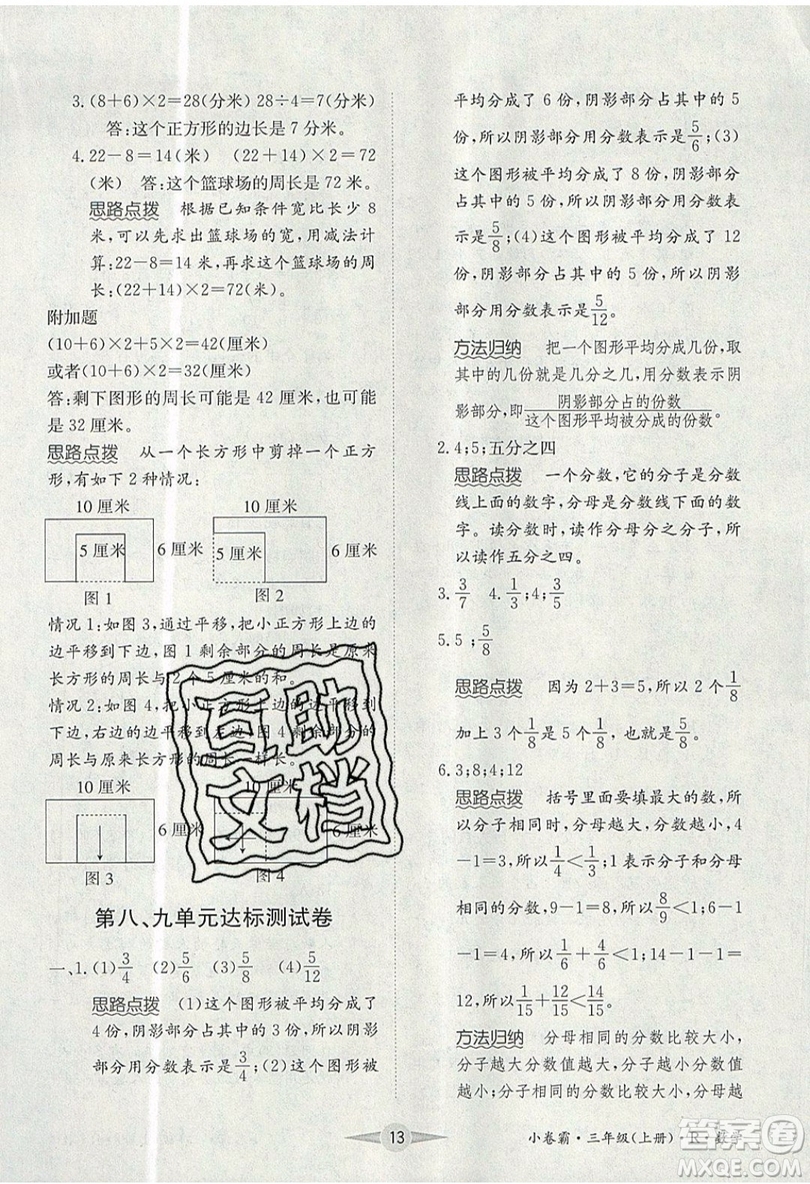 3.(8+6)×2=28(分米) 28÷4=7(分米)
答:这个正方形的边长是 7 分米。
4.22-8=14(米) (22+14)×2=72
(米) 答:这个篮球场的周长是 72 米。
思路点拨 根据已知条件宽比长少 8
米,可以先求出篮球场的宽,用减法计
算:22-8=14(米),再求这个篮球场的周
长:(22+14)×2=72(米)。
附加题
(10+6)×2+5×2=42(厘米)
或者(10+6)×2=32(厘米)
答:剩下图形的周长可能是 42 厘米,也可
能是 32 厘米。
思路点拨 从一个长方形中剪掉一个正方
形,有如下 2 种情况:
10 厘米 10 厘米
5 厘米 6 厘米 5 厘米 6 厘米
图 1 图 2
情况 1:如图 3,通过平移,把小正方形上边的
边平移到下边,图 1 剩余部分的周长是原来
长方形的周长与 2 个 5 厘米的和。
情况 2:如图 4,把小正方形上边的边平移到
下边,右边的边平移到左边,图
周长与原来长方形的周长一样长。
10 厘米
6 厘米 6 厘米
图 3 图 4
第八、九单元达标测试卷
一、1.(1)3/4 (2)5/6 (3)5/8 (4)5/12
思路点拨 (1)这个图形被平均分成了
4 份,阴影部分占其中的 3 份,所以阴影
部分用分数表示是3/4;(2)这个图形被
平均分成了 6 份,阴影部分占其中的 5
份,所以阴影部分用分数表示是5/6;(3)
这个图形被平均分成了 8 份,阴影部分
占其中的 5 份,所以阴影部分用分数表
示是5/8;(4)这个图形被平均分成了 12
份,阴影部分占其中的 5 份,所以阴影
部分用分数表示是5/12。
方法归纳 把一个图形平均分成几份,取
其中的几份就是几分之几,用分数表示阴
影部分,即阴影部分占的份数/这个图形被平均分成的份数。
2.4;5;五分之四
思路点拨 一个分数,它的分子是分数
线上面的数字,分母是分数线下面的数
字。读分数时,读作分母分之分子,所
以读作五分之四。
3.3/7 4.1/3;1/4;5/8
5.5 ;5/8
思路点拨 因为 2+3=5,所以 2 个1/8
加上 3 个1/8是 5 个1/8,也就是5/8。
6.3;8;4;12
思路点拨 括号里面要填最大的数,
所以分子相同时,分母越大分数越小,4
-1=3,所以1/4<1/3;1表示分子和分母
相同的分数,9-1=8,所以8/9<1;6-1
-1=4,所以1/6+4/6<1;14-1-1=
12,所以1/15+12/15<14/15。
方法归纳 分母相同的分数比较大小,
分子越大分数值越大,分子越小分数值
越小;分子相同的分数比较大小,分母越
13
小卷霸·三年级(上册)·R·数学
互助
文档
答案圈
MXQE.COM